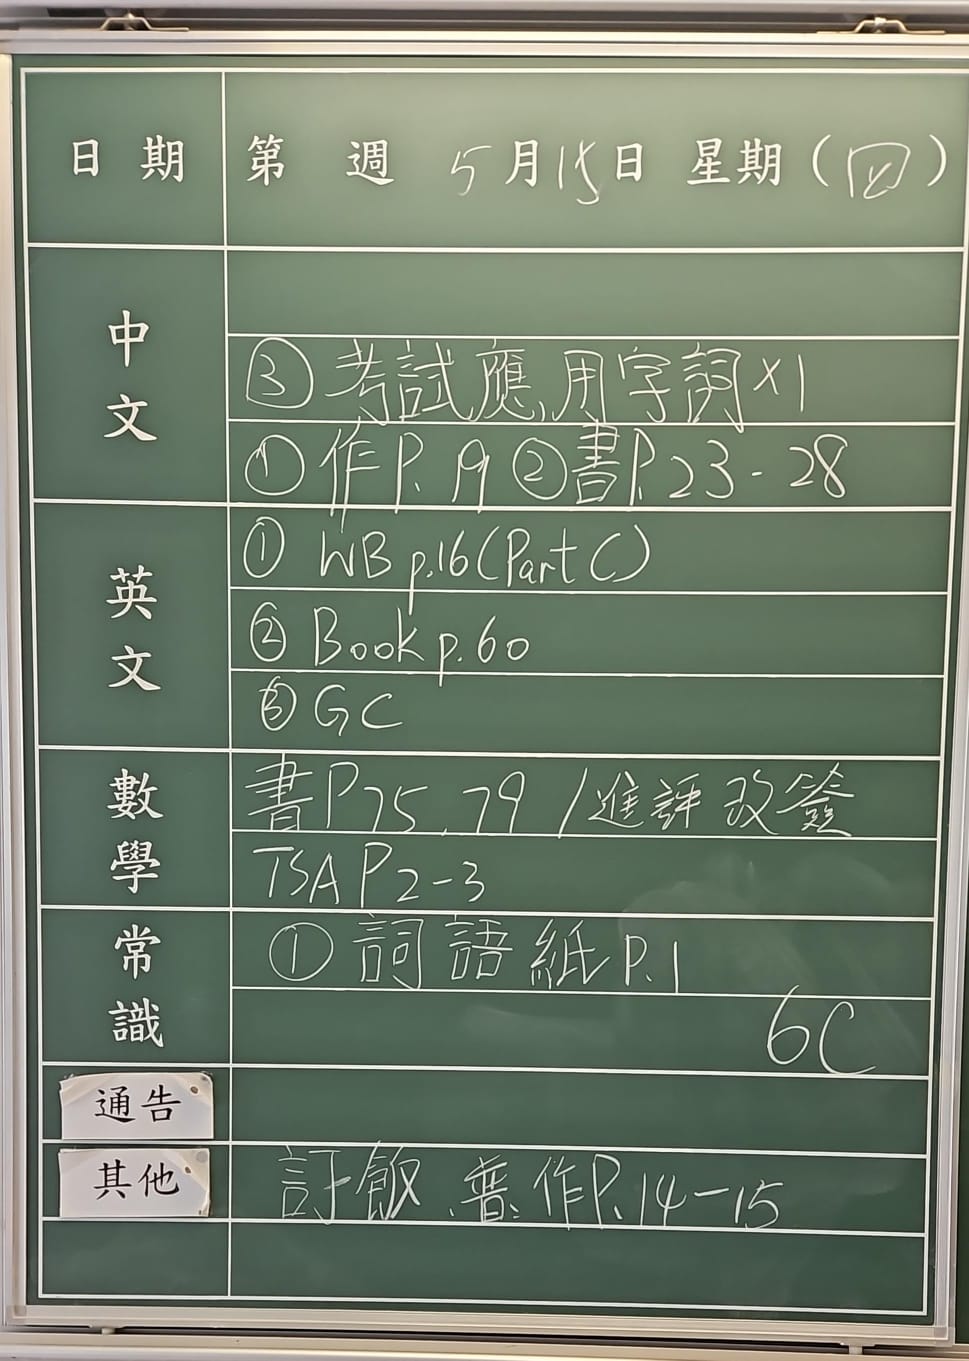 日期 第 週 5月15日 星期(四)
中文
③ 考試應用字詞×1
① 作P.19 ② 書P.23-28
英文
① WB p.16 (Part C)
② Book p.60
③ GC
數學
書P75,79 / 進評改簽
TSA P2-3
常識
① 詞語紙 P.1
6C
通告
其他
訂飯、普:作P.14-15